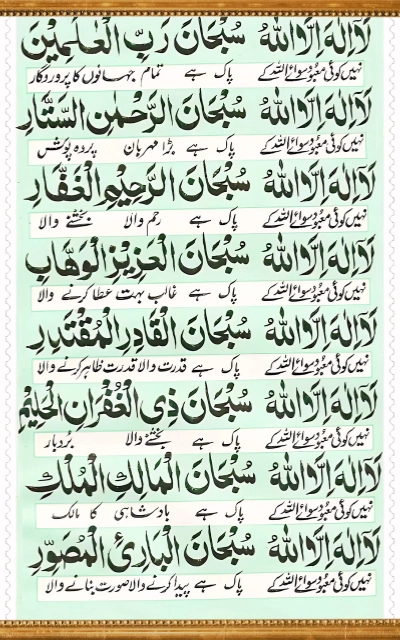 لَآ اِلٰهَ اِلَّا اللّٰهُ سُبْحَانَ رَبِّ الْعٰلَمِيْنَ
نہیں کوئی معبود سوائے اللہ کے پاک ہے تمام جہانوں کا پروردگار
لَآ اِلٰهَ اِلَّا اللّٰهُ سُبْحَانَ الرَّحْمٰنِ السَّتَّارِ
نہیں کوئی معبود سوائے اللہ کے پاک ہے بڑا مہربان پردہ پوش
لَآ اِلٰهَ اِلَّا اللّٰهُ سُبْحَانَ الرَّحِيْمِ الْغَفَّارِ
نہیں کوئی معبود سوائے اللہ کے پاک ہے رحم والا بخشنے والا
لَآ اِلٰهَ اِلَّا اللّٰهُ سُبْحَانَ الْعَزِيْزِ الْوَهَّابِ
نہیں کوئی معبود سوائے اللہ کے پاک ہے غالب بہت عطا کرنے والا
لَآ اِلٰهَ اِلَّا اللّٰهُ سُبْحَانَ الْقَادِرِ الْمُقْتَدِرِ
نہیں کوئی معبود سوائے اللہ کے پاک ہے قدرت والا قدرت ظاہر کرنے والا
لَآ اِلٰهَ اِلَّا اللّٰهُ سُبْحَانَ ذِى الْغُفْرَانِ الْحَلِيْمِ
نہیں کوئی معبود سوائے اللہ کے پاک ہے بخشنے والا بردبار
لَآ اِلٰهَ اِلَّا اللّٰهُ سُبْحَانَ الْمَالِكِ الْمُلْكِ
نہیں کوئی معبود سوائے اللہ کے پاک ہے بادشاہی کا مالک
لَآ اِلٰهَ اِلَّا اللّٰهُ سُبْحَانَ الْبَارِئِ الْمُصَوِّرِ
نہیں کوئی معبود سوائے اللہ کے پاک ہے پیدا کرنے والا صورت بنانے والا